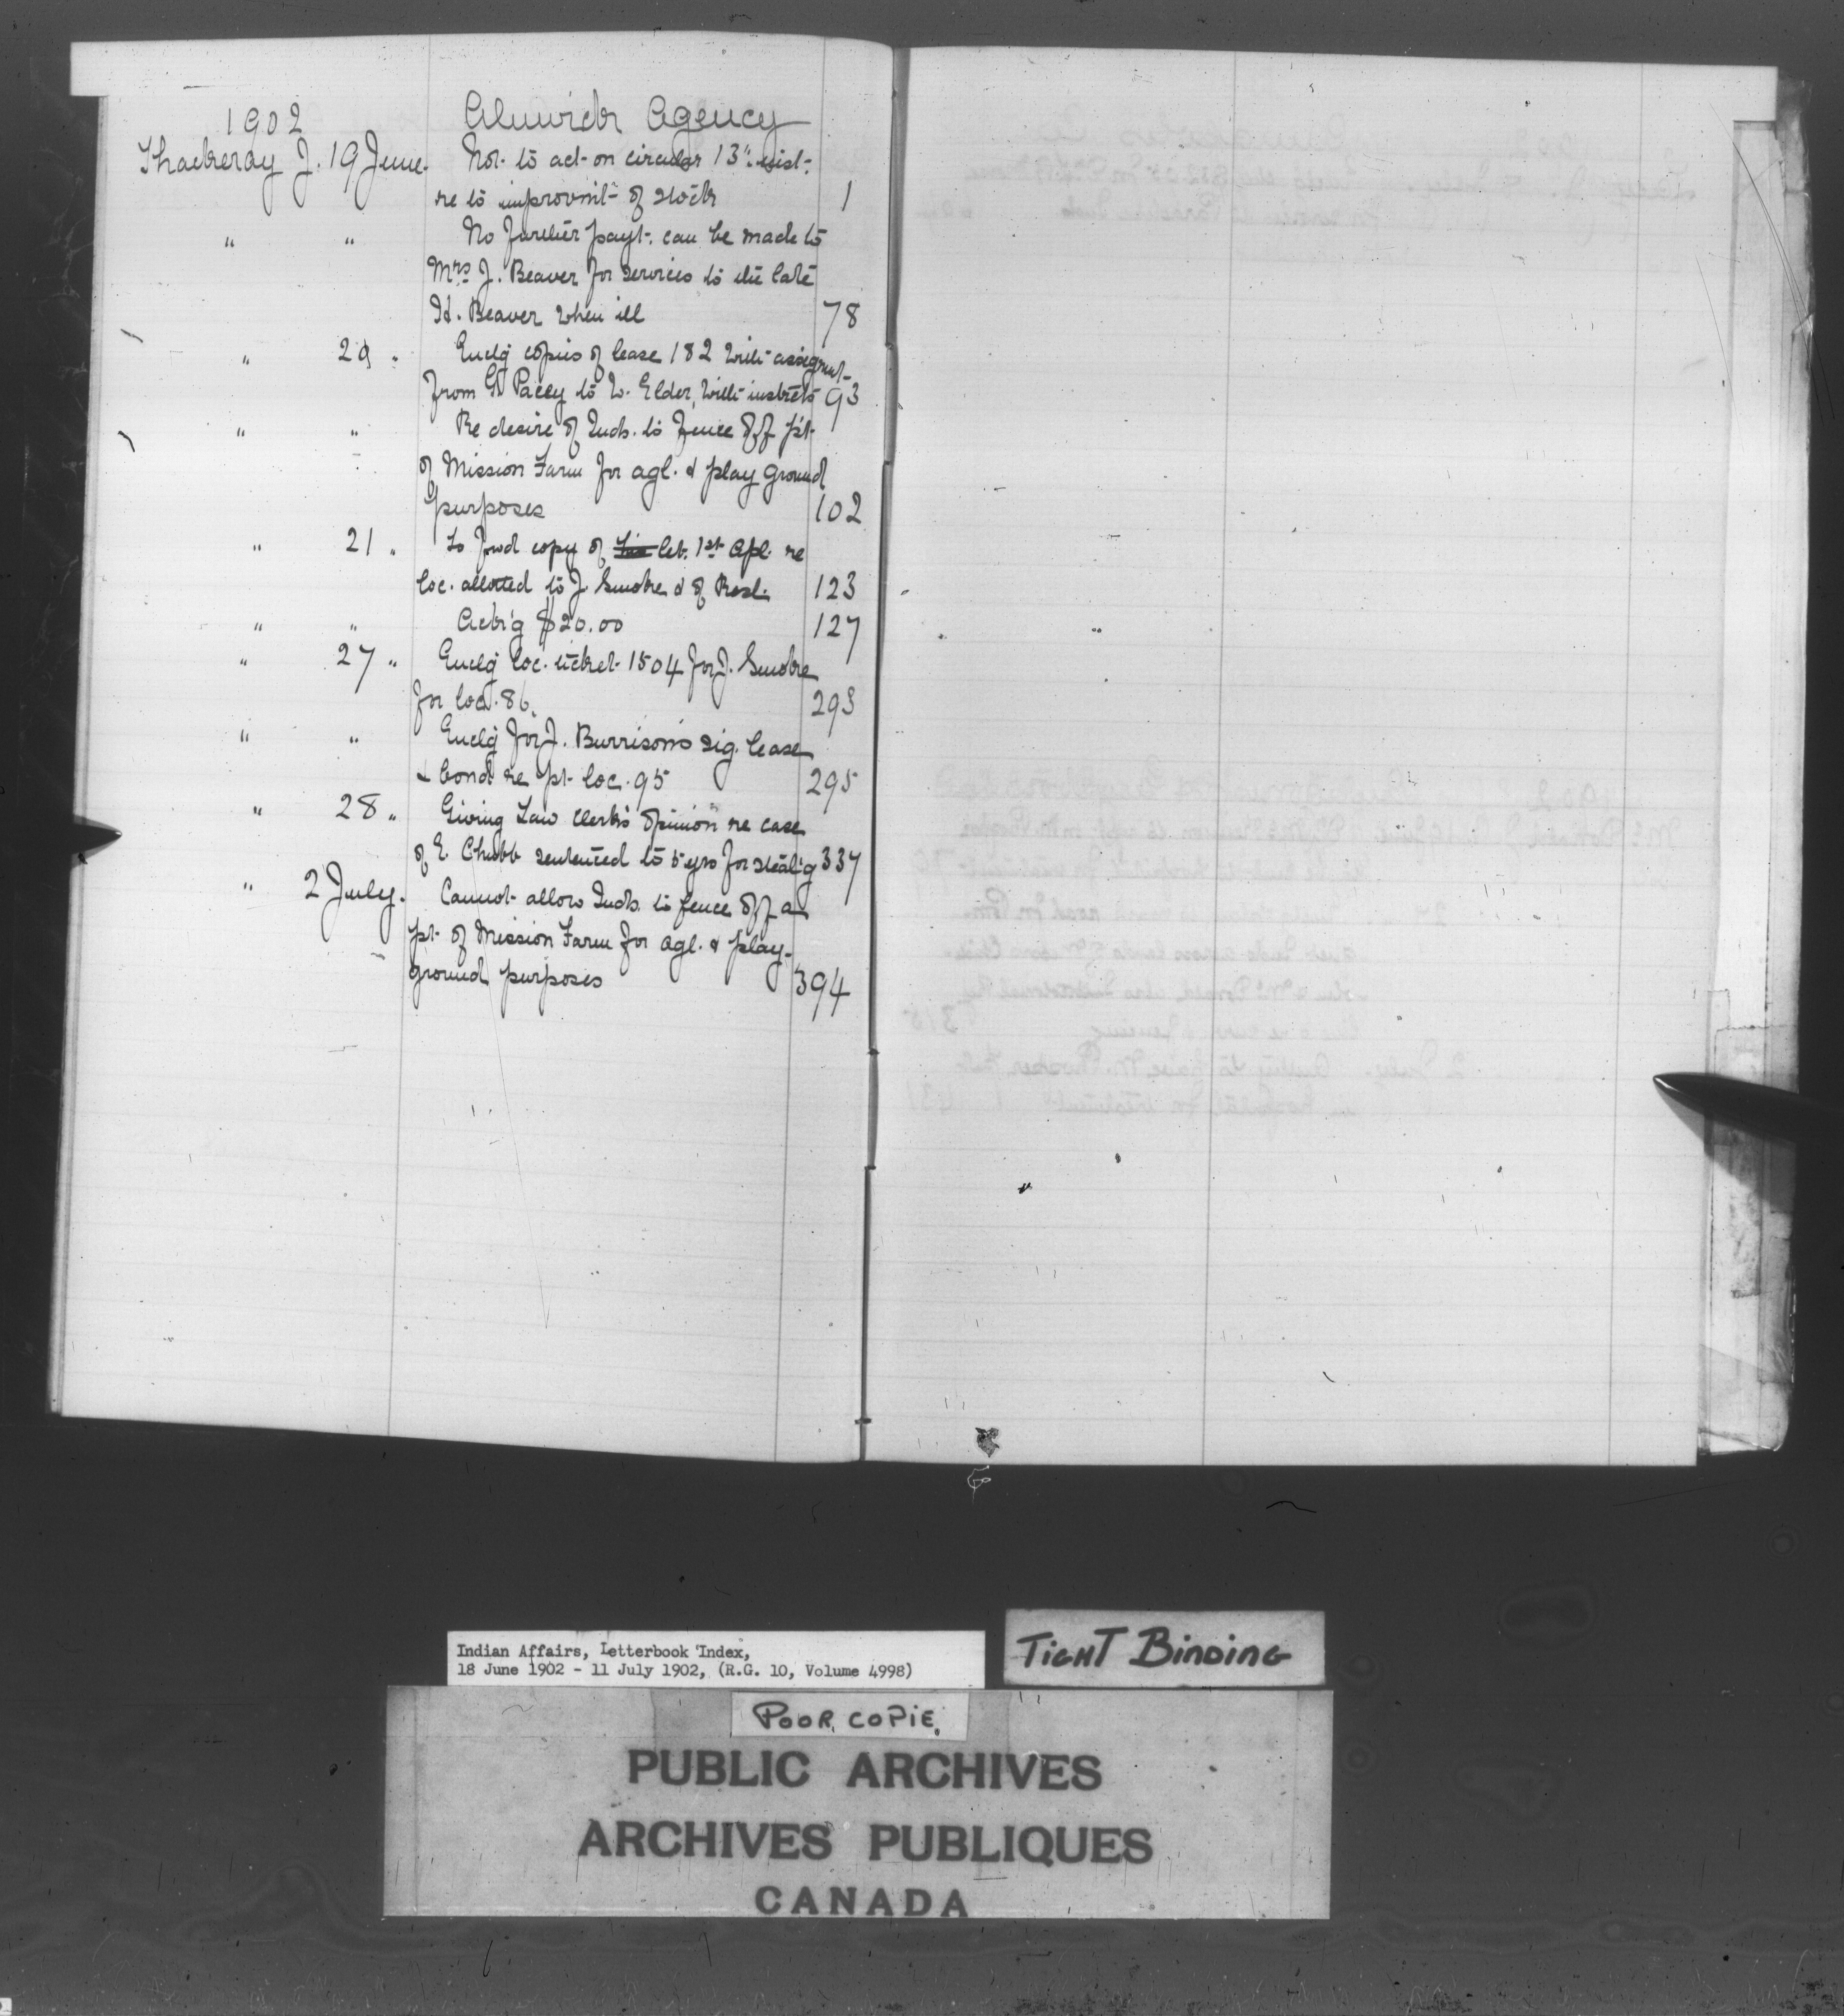 1902 Alnwick Agency
Thackeray J. 19 June. Not to act on circular 13" inst.
re to improvmt of stock 1
" " No further payt. can be made to
Mrs J. Beaver for services to the late
Hd. Beaver when ill 78
" 20 " Enclg copies of lease 182 with assignmt
from G. Pacey to W. Elder, with instrcts 93
" " Re desire of Inds. to fence off pt
of Mission Farm for agl. & play ground
purposes 102
" 21 " To fwd copy of let. 1st Apl. re
loc. allotted to J. Smoke & of Resl. 123
" " Ack'g $20.00 127
" 27 " Enclg loc. ticket 1504 for J. Smoke
for loc. 86. 293
" " Enclg for J. Burrison's sig. lease
& bond re pt. loc. 95 295
" 28 " Giving Law Clerk's opinion re case
of E. Chubb sentenced to 5 yrs for steal'g 337
" 2 July. Cannot allow Inds. to fence off a
pt. of Mission Farm for agl. & play-
ground purposes 394
Indian Affairs, Letterbook Index,
18 June 1902 - 11 July 1902, (R.G. 10, Volume 4998)
TIGHT BINDING
POOR COPIE.
PUBLIC ARCHIVES
ARCHIVES PUBLIQUES
CANADA